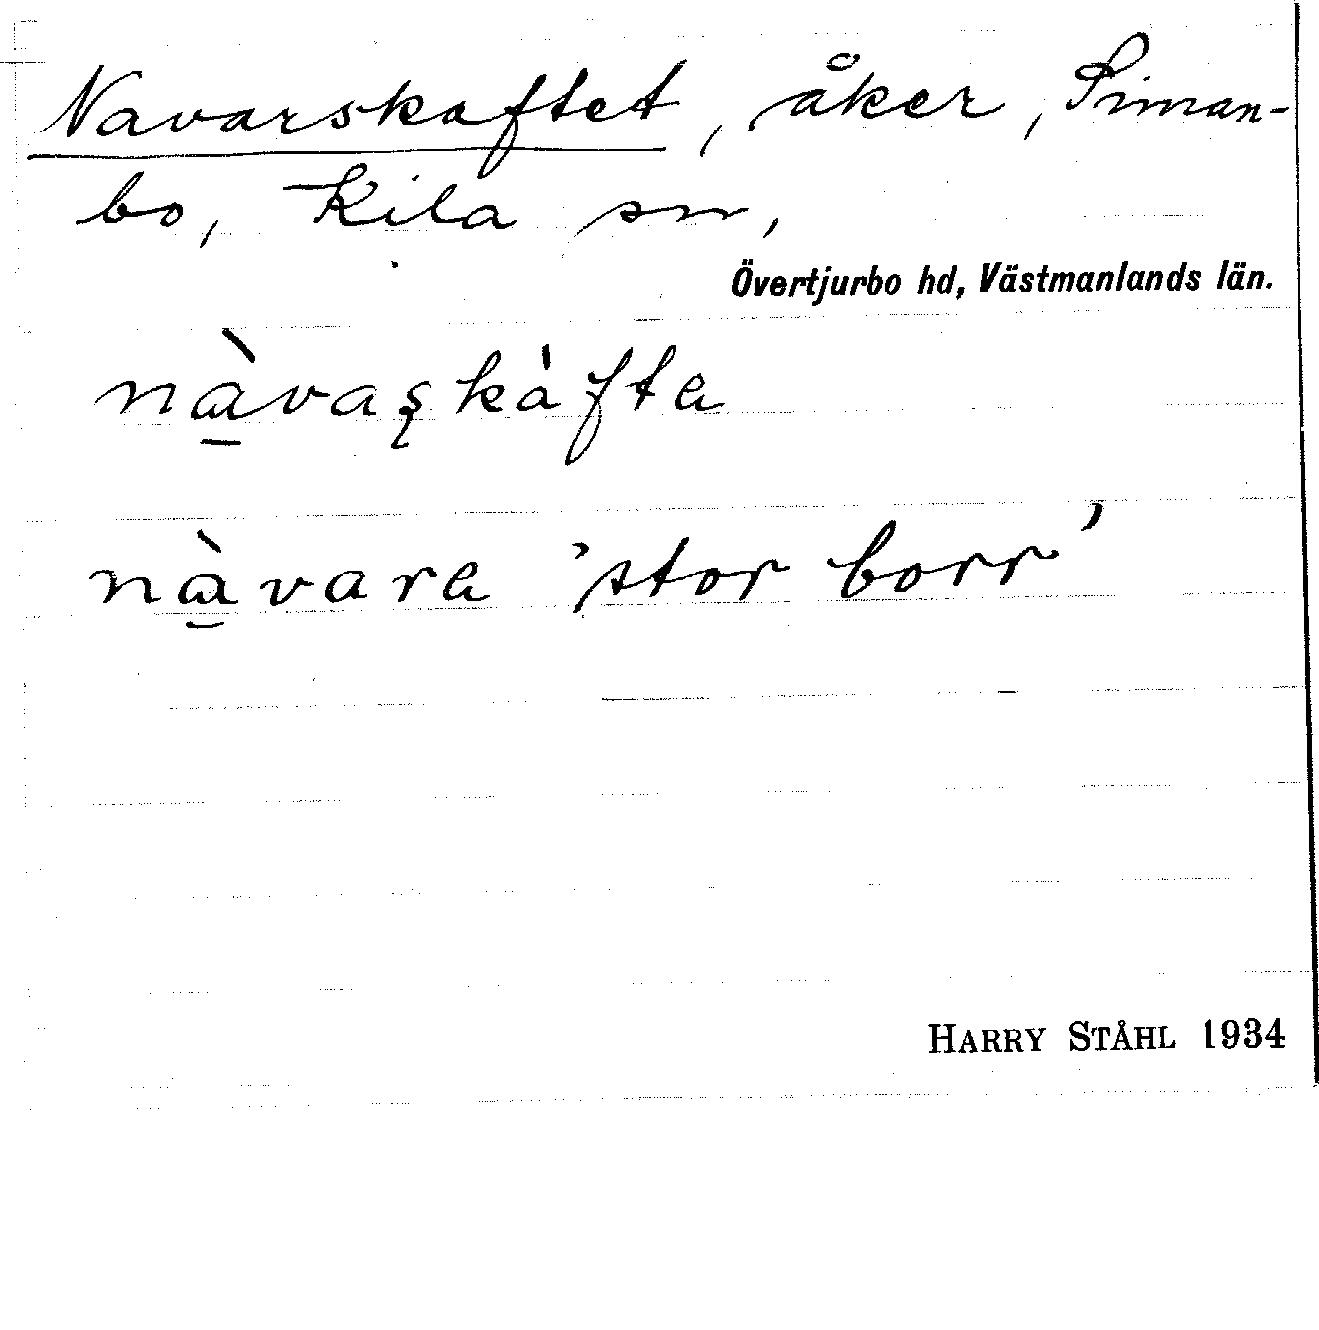 Navarskaftet, åker, Siman-
bo, Kila sn,
Övertjurbo hd, Västmanlands län.
nàvaʂkàfta
nàvara 'stor borr'
HARRY STÅHL 1934